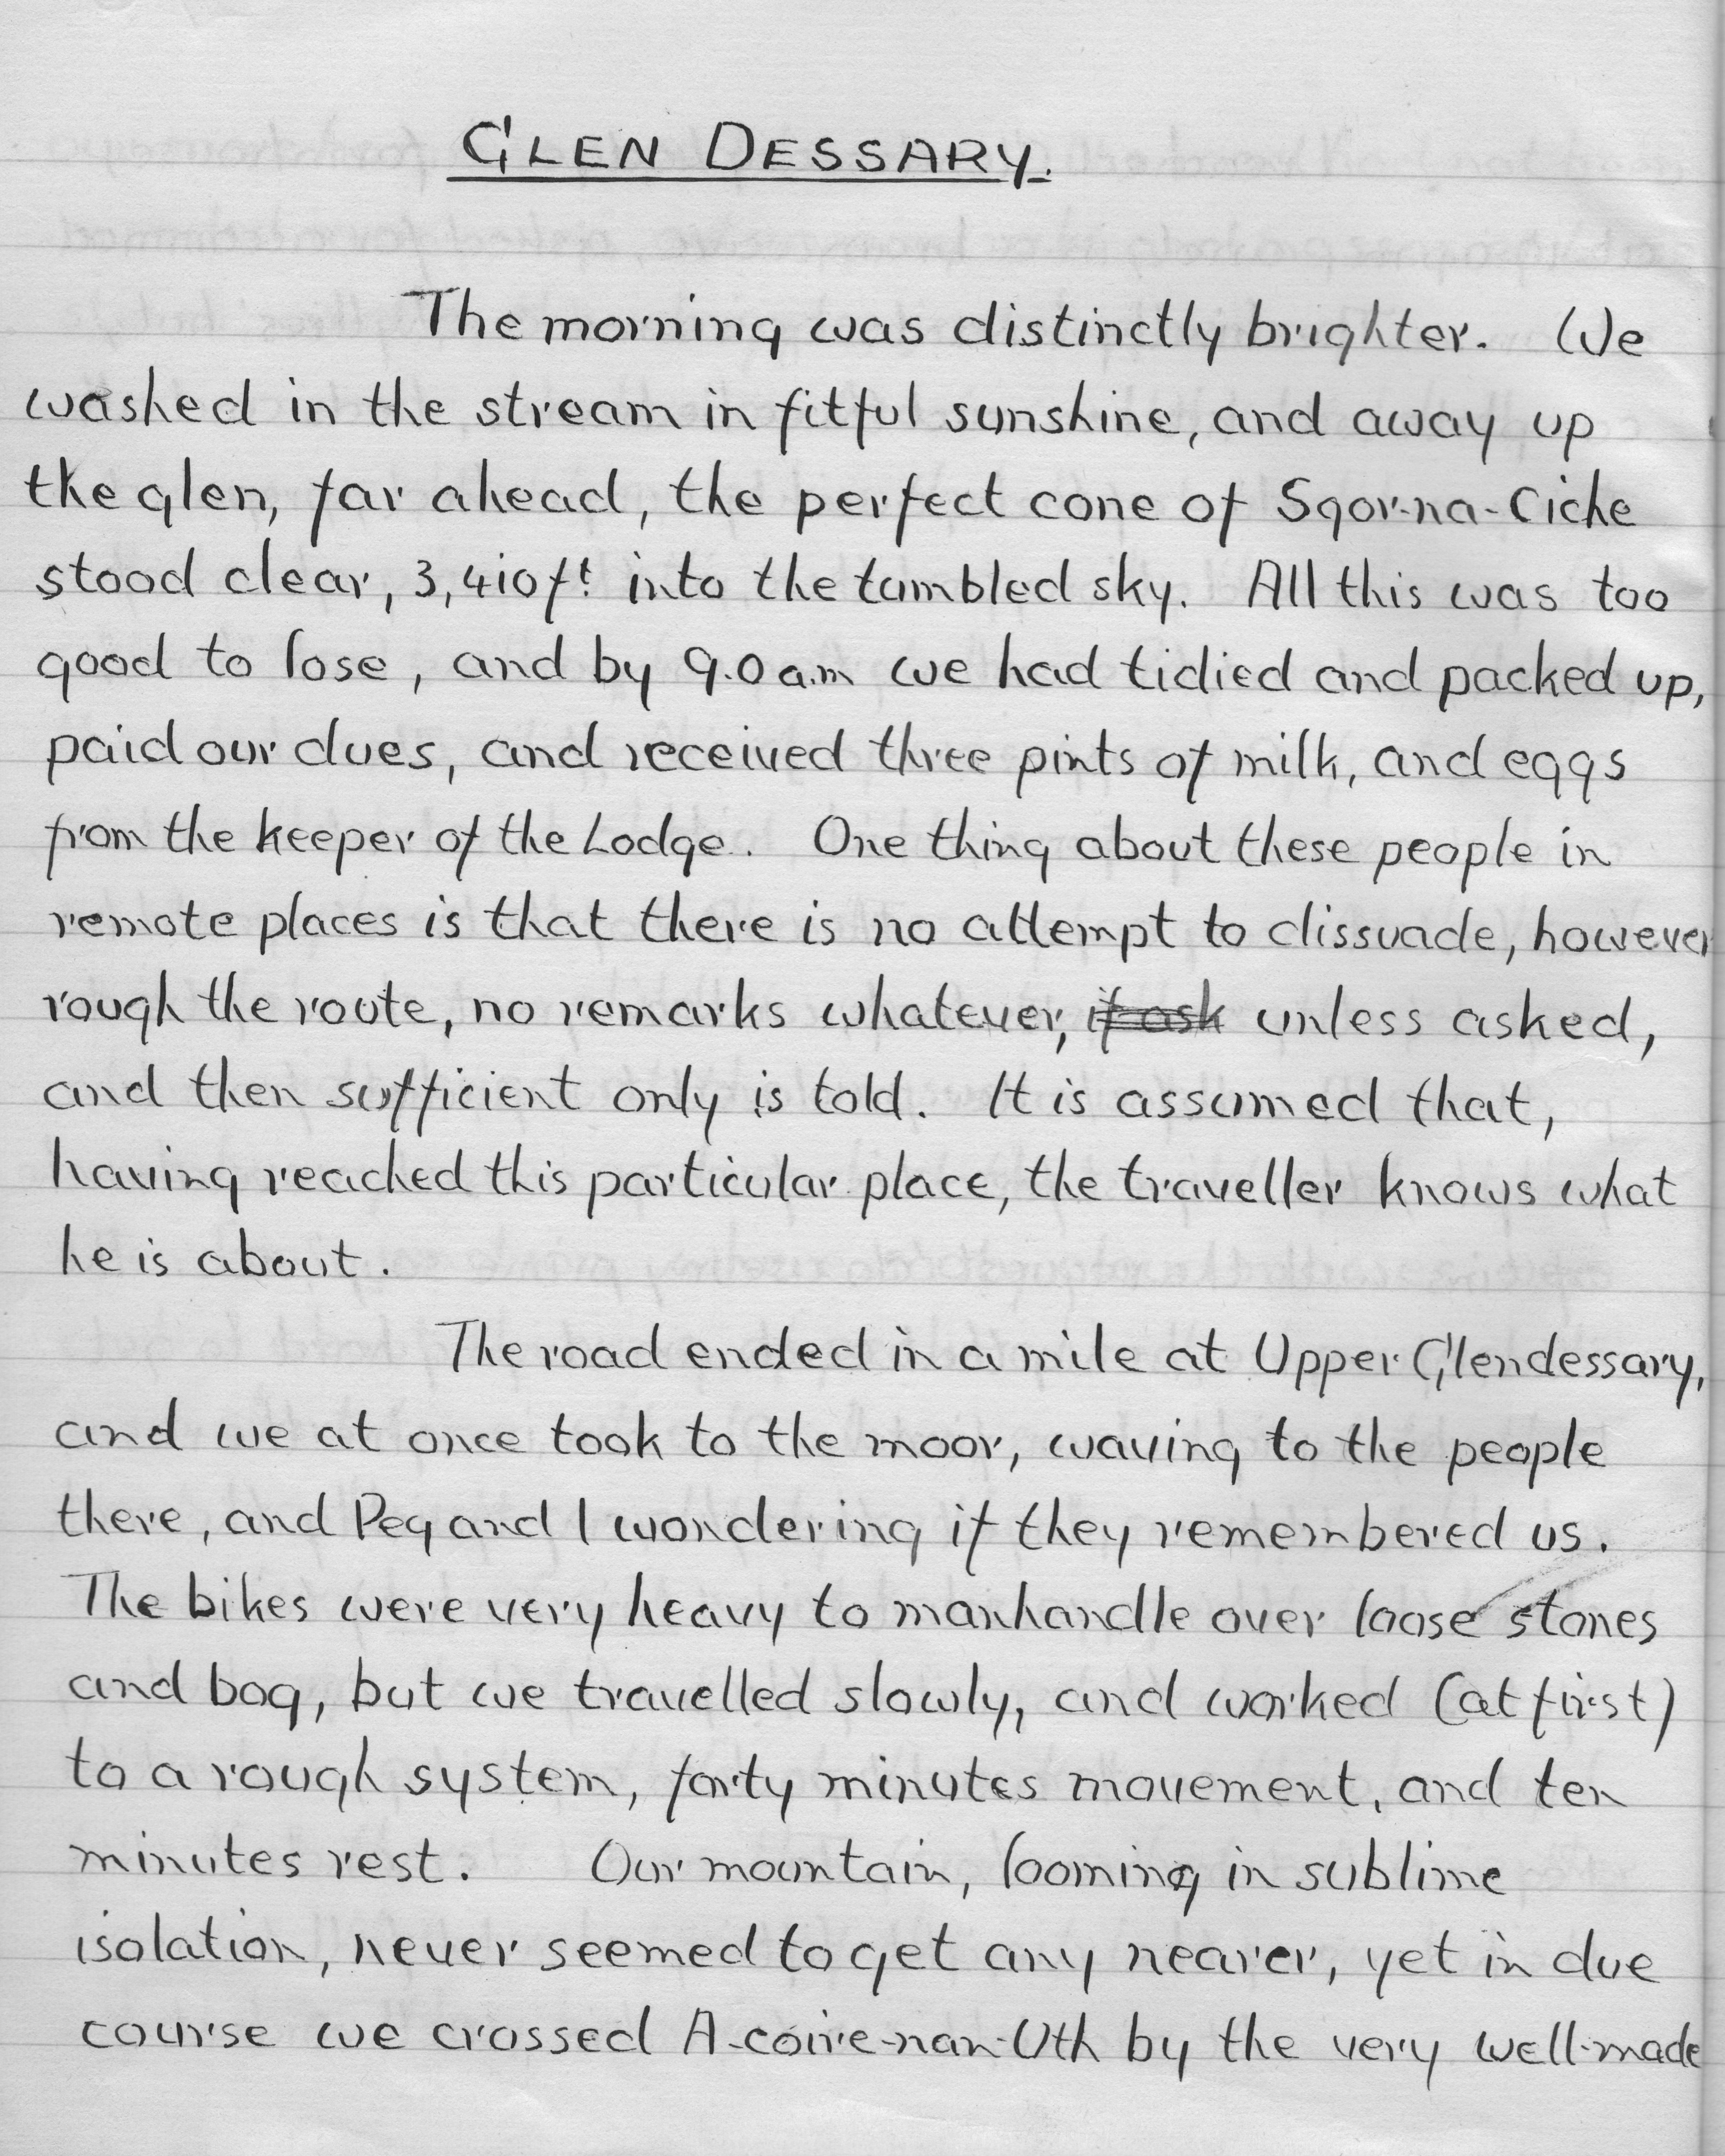 GLEN DESSARY.
The morning was distinctly brighter. We
washed in the stream in fitful sunshine, and away up
the glen, far ahead, the perfect cone of Sgor-na-Ciche
stood clear, 3,410ft into the tumbled sky. All this was too
good to lose, and by 9.0 a.m we had tidied and packed up,
paid our dues, and received three pints of milk, and eggs
from the keeper of the Lodge. One thing about these people in
remote places is that there is no attempt to dissuade, however
rough the route, no remarks whatever, if ask unless asked,
and then sufficient only is told. It is assumed that,
having reached this particular place, the traveller knows what
he is about.
The road ended in a mile at Upper Glendessary,
and we at once took to the moor, waving to the people
there, and Peg and I wondering if they remembered us.
The bikes were very heavy to manhandle over loose stones
and bog, but we travelled slowly, and worked (at first)
to a rough system, forty minutes movement, and ten
minutes rest. Our mountain, looming in sublime
isolation, never seemed to get any nearer, yet in due
course we crossed A-coire-nan-Uth by the very well-made